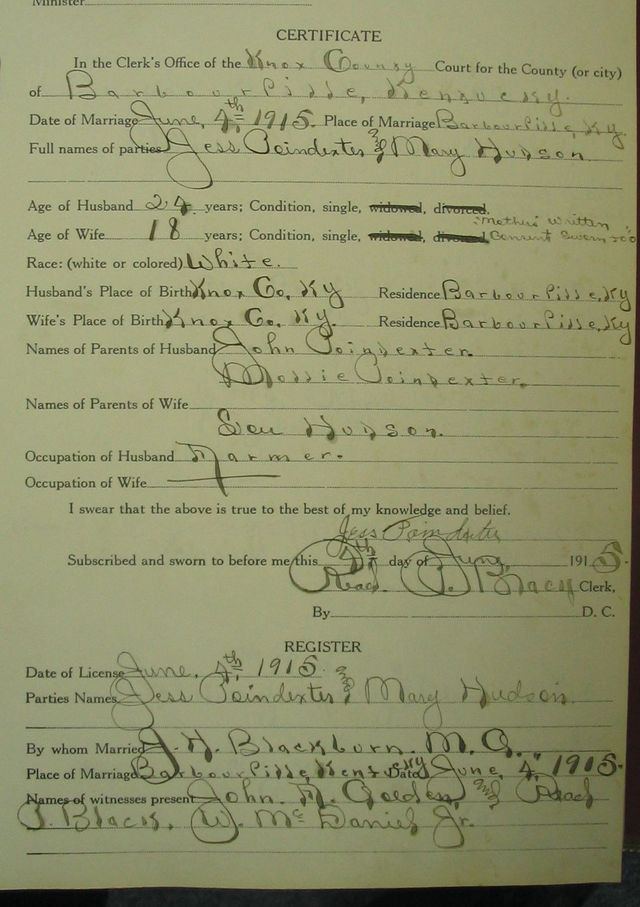 Minister
CERTIFICATE
In the Clerk's Office of the Knox County Court for the County (or city)
of Barbourville, Kentucky.
Date of Marriage June, 4th 1915. Place of Marriage Barbourville, Ky.
Full names of parties Jess Poindexter and Mary Hudson
Age of Husband 24 years; Condition, single, widowed, divorced.
Mothers Written
Age of Wife 18 years; Condition, single, widowed, divorced Consent Sworn to
Race: (white or colored) White.
Husband's Place of Birth Knox Co, Ky Residence Barbourville, Ky
Wife's Place of Birth Knox Co, Ky. Residence Barbourville, Ky
Names of Parents of Husband John Poindexter.
Mollie Poindexter.
Names of Parents of Wife
Hudson.
Occupation of Husband Farmer.
Occupation of Wife
I swear that the above is true to the best of my knowledge and belief.
Jess Poindexter
Subscribed and sworn to before me this 4th day of June, 1915.
Read P. Black Clerk,
By D. C.
REGISTER
Date of License June, 4th, 1915.
Parties Names Jess Poindexter and Mary Hudson.
By whom Married J. H. Blackburn. M. G.
Place of Marriage Barbourville, Kentucky Date June, 4, 1915.
Names of witnesses present John. H. Golden, and Read
P. Black, W. Mc Daniel Jr.